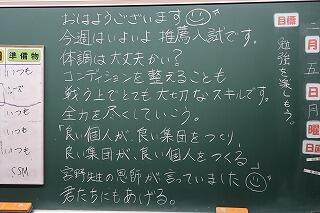 おはようございます
今週はいよいよ推薦入試です。
体調は大丈夫かい？
コンディションを整えることも
戦う上でとても大切なスキルです。
全力を尽くしていこう。
「良い個人が、良い集団をつくり、
良い集団が、良い個人をつくる」
宮野先生の恩師が言っていました
君たちにもあげる。
目標
勉強を楽しもう。
準備物
いつも
いつも
いつも
いつも
SSM
月
日
日直